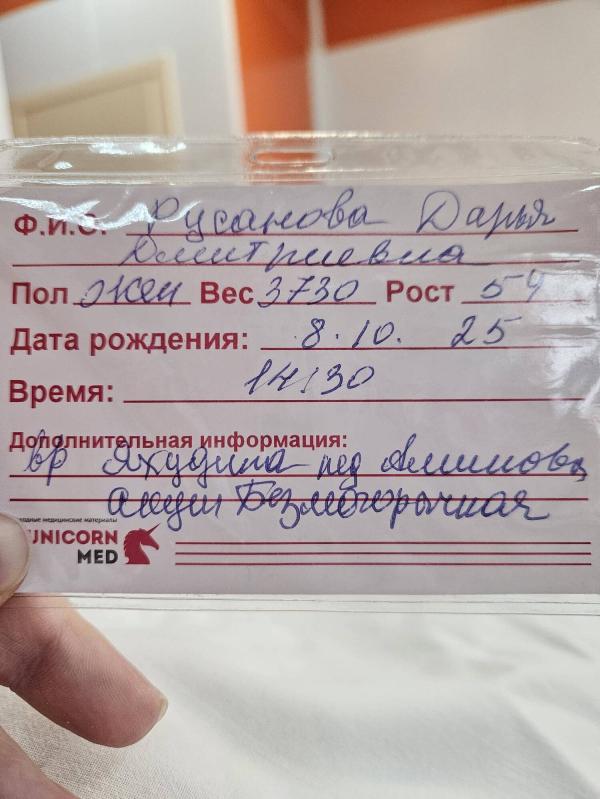 Ф.И.О. Русанова Дарья
Дмитриевна
Пол жен Вес 3730 Рост 54
Дата рождения: 8.10. 25
Время: 14:30
Дополнительная информация:
вр Яхудина пед Алимова
акуш Безмогорычная
медицинские материалы
UNICORN
MED